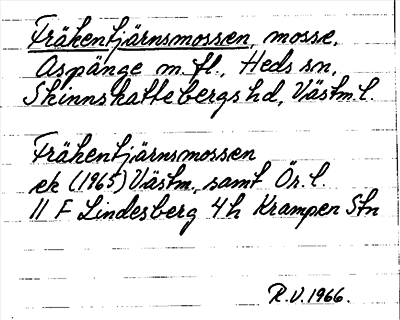 Fräkentjärnsmossen, mosse,
Aspänge m.fl., Heds sn,
Skinnskattebergs hd, Västm.l.
Fräkentjärnsmossen
ek (1965) Västm. samt Ör.l.
11 F Lindesberg 4h Krampen Stn
R.V. 1966.